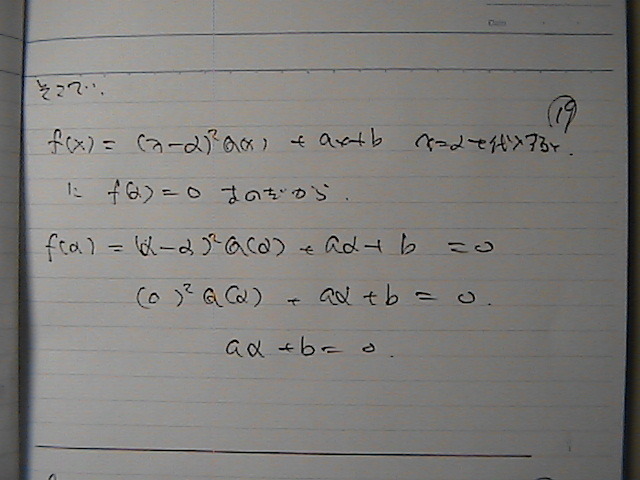 そこで、
⑲
f(x) = (x-α)²Q(x) + ax+b x=αを代入すると
f(α)=0 なのだから.
f(α) = (α-α)²Q(α) + aα+b = 0
(0)²Q(α) + aα+b = 0.
aα+b = 0.